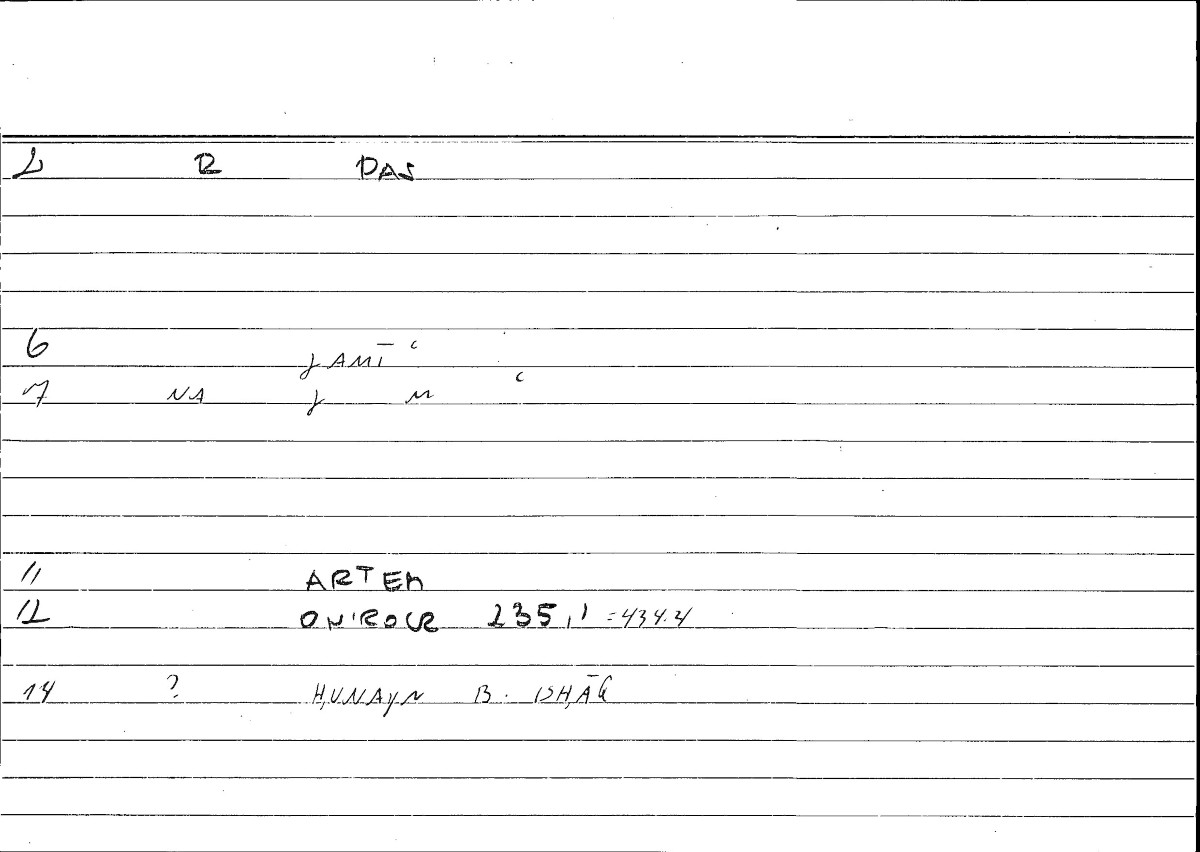 L R DAS
6 JAMĪʿ
7 NA J M ʿ
11 ARTEM
12 ONIROCR 235,1 =434.4
14 ? ḤUNAYN B. ISḤĀQ